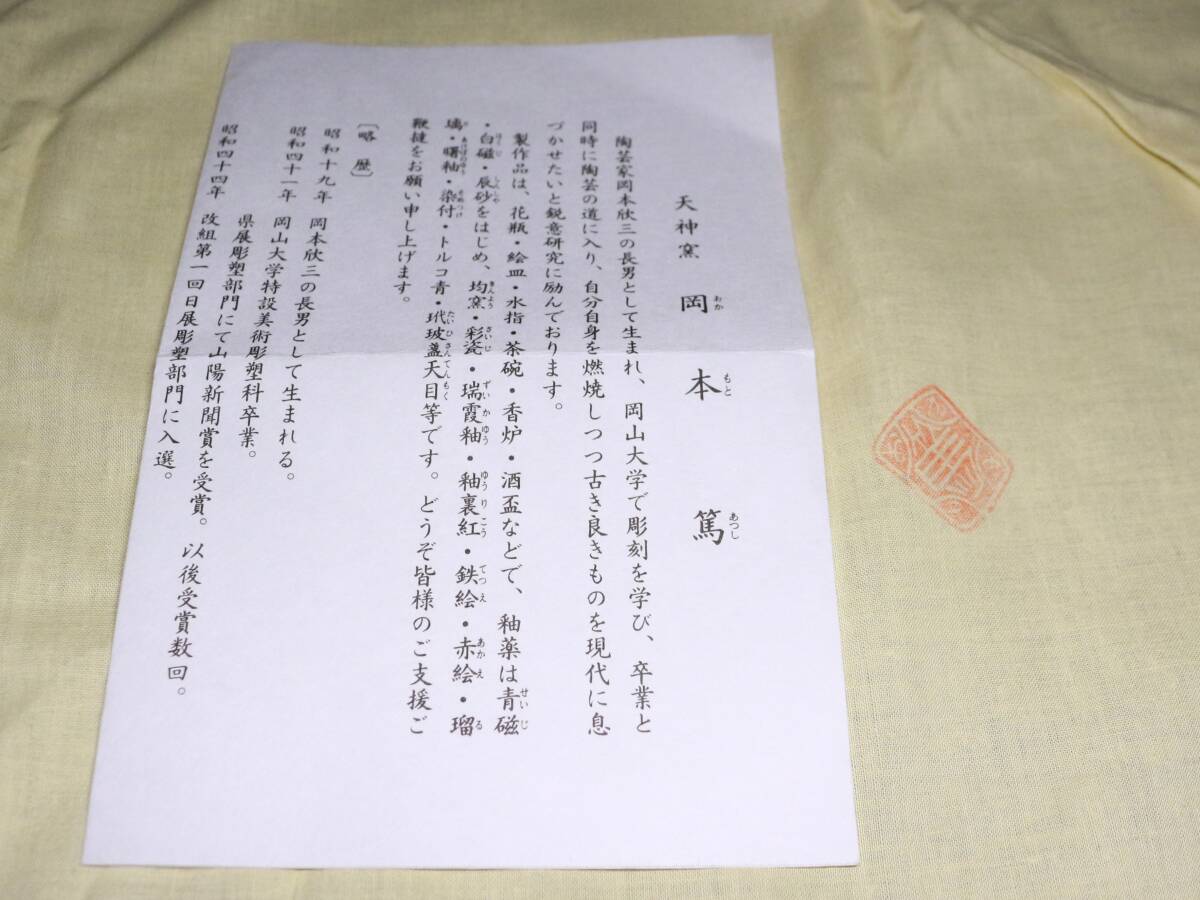 天神窯 岡本 篤
おか もと あつし
陶芸家岡本欣三の長男として生まれ、岡山大学で彫刻を学び、卒業と
同時に陶芸の道に入り、自分自身を燃焼しつつ古き良きものを現代に息
づかせたいと鋭意研究に励んでおります。
製作品は、花瓶・絵皿・水指・茶碗・香炉・酒盃などで、釉薬は青磁
せいじ
・白磁・辰砂をはじめ、均窯・彩瓷・瑞霞釉・釉裏紅・鉄絵・赤絵・瑠
はくじ しんしゃ きんよう さいじ ずいかゆう ゆうりこう てつえ あかえ る
璃・曙釉・染付・トルコ青・玳玻盞天目等です。どうぞ皆様のご支援ご
り あけぼのゆう そめつけ たいひさんてんもく
鞭撻をお願い申し上げます。
〔略歴〕
昭和十九年 岡本欣三の長男として生まれる。
昭和四十一年 岡山大学特設美術彫塑科卒業。
県展彫塑部門にて山陽新聞賞を受賞。以後受賞数回。
昭和四十四年 改組第一回日展彫塑部門に入選。